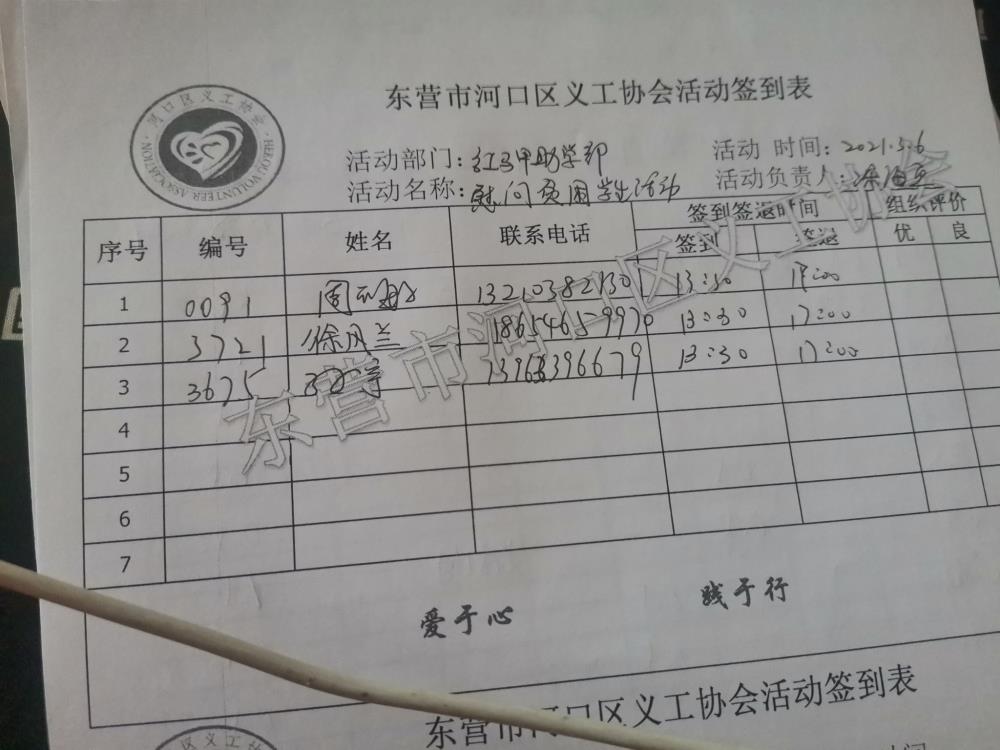 东营市河口区义工协会活动签到表
河口区义工协会
HEKOU VOLUNTEER ASSOCIATION
活动部门：红马甲助学部 活动 时间：2021.5.6
活动名称：慰问贫困学生活动 活动负责人：
序号 编号 姓名 联系电话 签到签退时间 组织评价
签到 签退 优 良
1 0091 周 13210382130 13:30 17:00
2 3721 徐风兰 18654659970 13:30 17:00
3 3675 13963396679 13:30 17:00
4
5
6
7
爱于心 践于行
东营市河口区义工协会活动签到表
时间
东营市河口区义工协会